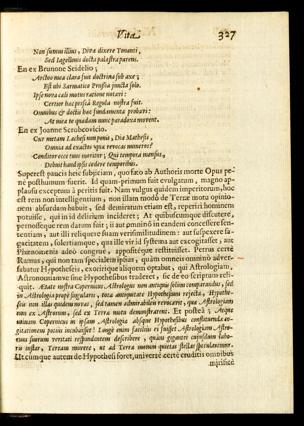 Vita 327
Non sumus illius, Diva dixere Tonanti,
Sed Iagellonis docta palæstra parens.
En ex Brunone Seidelio;
Arctoo mea clara fuit doctrina sub axe;
Est ubi Sarmatico Prussia juncta solo.
Ipse nova cœli motus ratione notavi:
Certior hac prisca Regula nostra fuit.
Omnibus & doctis hac fundamenta probavi:
At mea te quadam nunc paradoxa movent.
En ex Joanne Scrobcovicio.
Cur metam Lachesis imponis, Dia Mathesis,
Omnia ad exactus quæ revocas numeros?
Conditor ecce tuus moritur; Qui tempora mensus,
Debuit haud ipse cedere temporibus.
Superest paucis heic subjiciam, quoso ab Authoris morte Opus pe-
nes posthumum fuerit. Id quam-primum fuit evulgatum, magno ap-
plausu exceptum à peritis fuit. Nam vulgus quidem imperitorum, hoc
est rem non intelligentium, non illam modò de Terræ motu opinio-
nem absurdam habuit, sed demiratum etiam est, reperiri hominem
potuisse, qui in id delirium incideret; At quibuscumque discutere,
pernosceque rem datum fuit; ii aut omninò in eandem concessere sen-
tentiam, aut illi reliquere suam verisimilitudinem: aut suspexere sa-
gacitatem, solertiamque, qua ille vir id systema aut excogitasset, aut
Phænomenis adeò congruè, appositéque restituisset. Perrus certè
Ramus, qui non tam specialem ipsius, quàm omneis omninò adver-
sabatur Hypotheseis, exoriturque aliquem optabat, qui Astrologiam,
Astronomiamve sine Hypothesibus traderet, sic de eo scriptum reli-
quit. Ætate nostra Copernicus Astrologus non antiquis solùm comparandus, sed
in Astrologia propè singularis, tota antiquitate Hypothesium rejecta, Hypothe-
seis non illas quidem novas, sed tamen admirabileis revocavit, qua Astrologiam
non ex Astrorum, sed ex Terra motu demonstrarent. Et posteà; Atque
utinam Copernicus in istam Astrologia absque Hypothesibus constituenda co-
gitationem potius incubuisset! Longè enim facilius ei fuisset Astrologiam Astro-
rum suorum veritati respondentem describere, quàm gigantei cujusdam labo-
ris instar, Terram movere, ut ad Terra motum quietas stellas specularemur.
Utcumque autem de Hypothesi foret, universè certè eruditis omnibus
mirificè